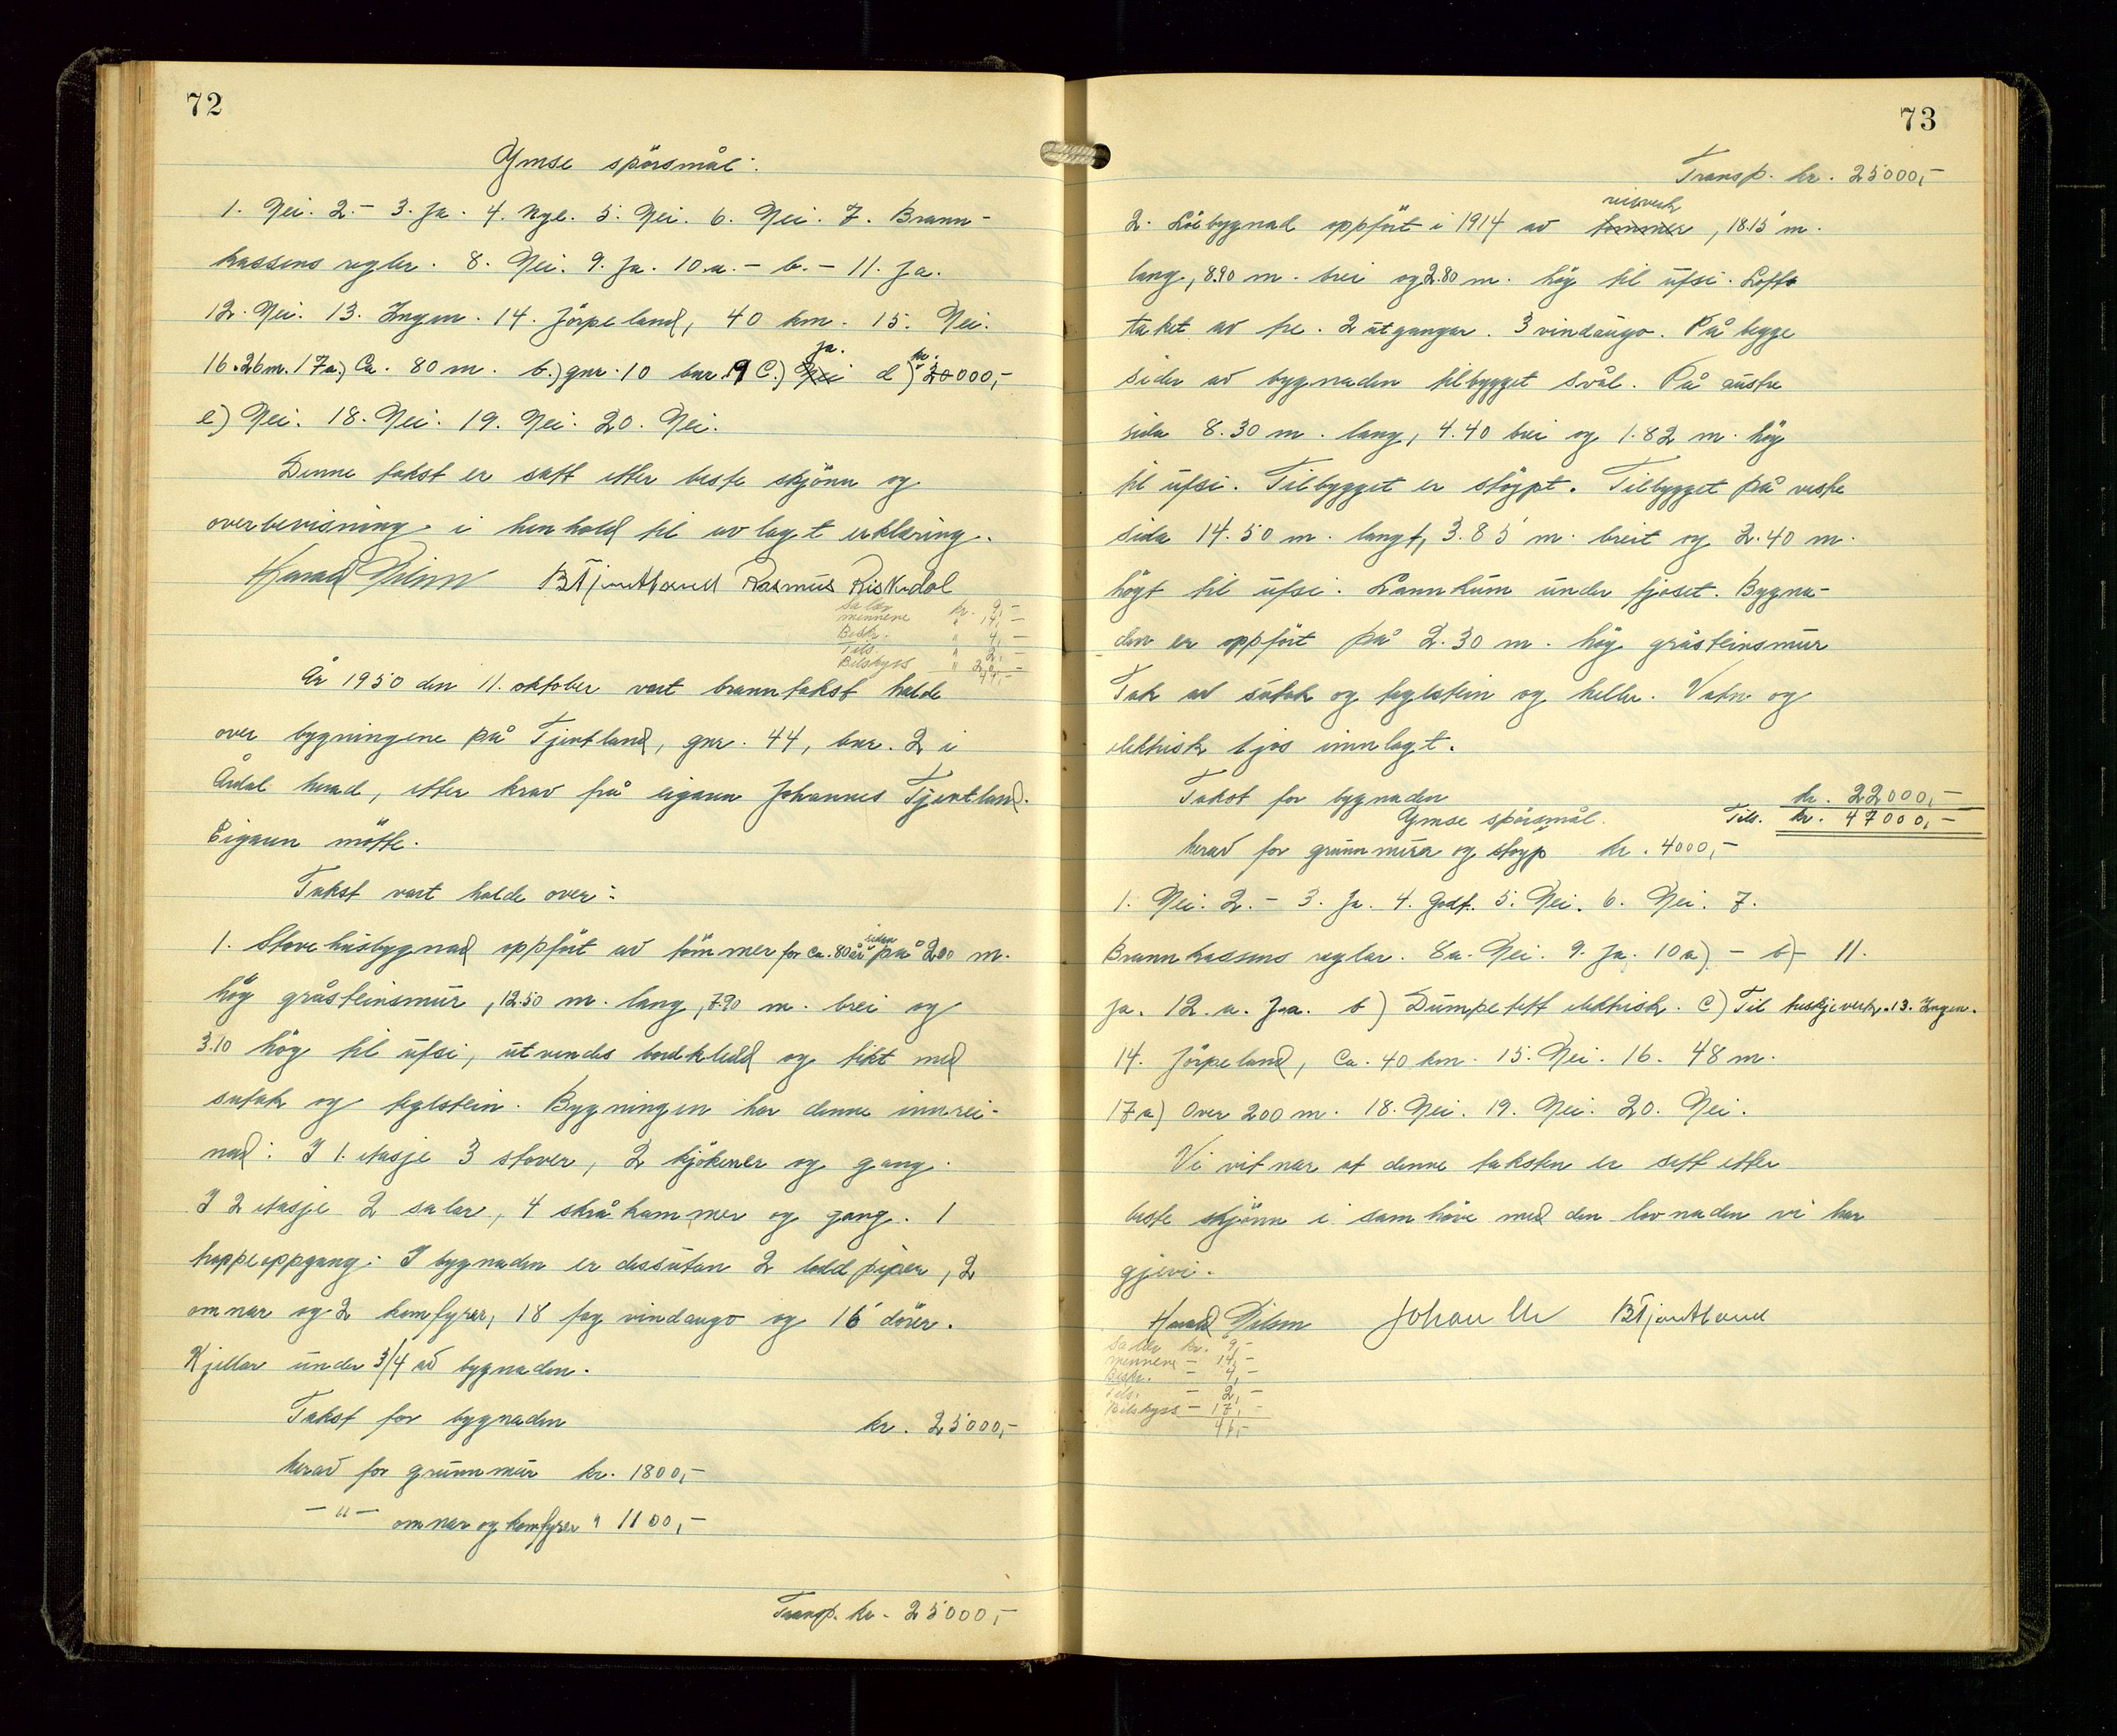 72
Ymse spörsmål:
1. Nei. 2.- 3. Ja. 4. Nye. 5. Nei. 6. Nei. 7. Brann-
kassens regler. 8. Nei. 9. Ja. 10.a.- b.- 11. Ja.
12. Nei. 13. Ingen. 14. Jörpeland, 40 km. 15. Nei.
16. 26m. 17a.) Ca. 80 m. b.) gnr. 10 bnr. 9 C.) Nei ja. d) kr. 30000,-
e) Nei. 18. Nei. 19. Nei. 20. Nei.
Denne takst er satt etter beste skjönn og
overbevisning i henhold til avlagt erklæring.
Harald Nilsen BTjentland Rasmus Riskedal
Salær kr. 9,-
mennene " 14,-
Beskr. " 4,-
Tils. " 2,-
Bilskyss "
År 1950 den 11. oktober vart branntakst halde
over bygningene på Tjentland, gnr. 44, bnr. 2 i
Årdal herad, etter krav frå eigaren Johannes Tjentland.
Eigaren mötte.
Takst vart halde over:
1. Stovehusbygnad oppfört av tömmer for ca. 80 år siden på 2.00 m.
hög gråsteinsmur, 12.50 m. lang, 7.90 m. brei og
3.10 hög til ufsi, utvendes bordkledd og tekt med
sutak og teglstein. Bygningen har denne innrei-
nad: I 1. etasje 3 stover, 2 kjökener og gang.
I 2 etasje 2 salar, 4 skråkammer og gang. 1
trappeoppgang. I bygnaden er dessutan 2 ledd piper, 2
omnar og 2 komfyrer, 18 fag vindaugo og 16 dörer.
Kjellar under 3/4 av bygnaden.
Takst for bygnaden kr. 25000,-
herav for grunnmur kr. 1800,-
-"- omnar og komfyrer " 1100,-
Transp. kr. 25000,-
73
Transp. kr. 25000,-
2. Löebygnad oppfört i 1914 av tömmer reisverk, 18.15 m.
lang, 8.90 m. brei og 2.80 m. hög til ufsi. Lofts
taket av tre. 2 utgangar. 3 vindaugo. På begge
sider av bygnaden tilbygget sval. På austre
sida 8.30 m. lang, 4.40 brei og 1.82 m. hög
til ufsi. Tilbygget er stöypt. Tilbygget på vestre
sida 14.50 m. langt, 3.85 m. breit og 2.40 m.
högt til ufsi. Lannkum under fjoset. Bygna-
den er oppfört på 2.30 m. hög gråsteinsmur
Tak av sutak og teglstein og heller. Vatn og
elektrisk ljos innlagt.
Takst for bygnaden kr. 22000,-
Ymse spörsmål. Tils. kr. 47000,-
herav for grunnmurer og stöyp kr. 4000,-
1. Nei. 2.- 3. Ja. 4. Godt. 5. Nei. 6. Nei. 7.
Brannkassens reglar. 8a. Nei. 9. Ja. 10a) - b)- 11.
Ja. 12. a. Ja. b) Dumpetett elektrisk. C) Til treskjeverk. 13. Ingen.
14. Jörpeland, Ca. 40 km. 15. Nei. 16. 48 m.
17a) Over 200 m. 18. Nei. 19. Nei. 20. Nei.
Vi vitnar at denne taksten er sett etter
beste skjönn i samhöve med den lovnaden vi har
gjevi.
Harald Nilsen Johan BTjentland
Salær kr. 9,-
mennene - 14,-
Beskr. - 4,-
Tils. - 2,-
Bilskyss - 17,-